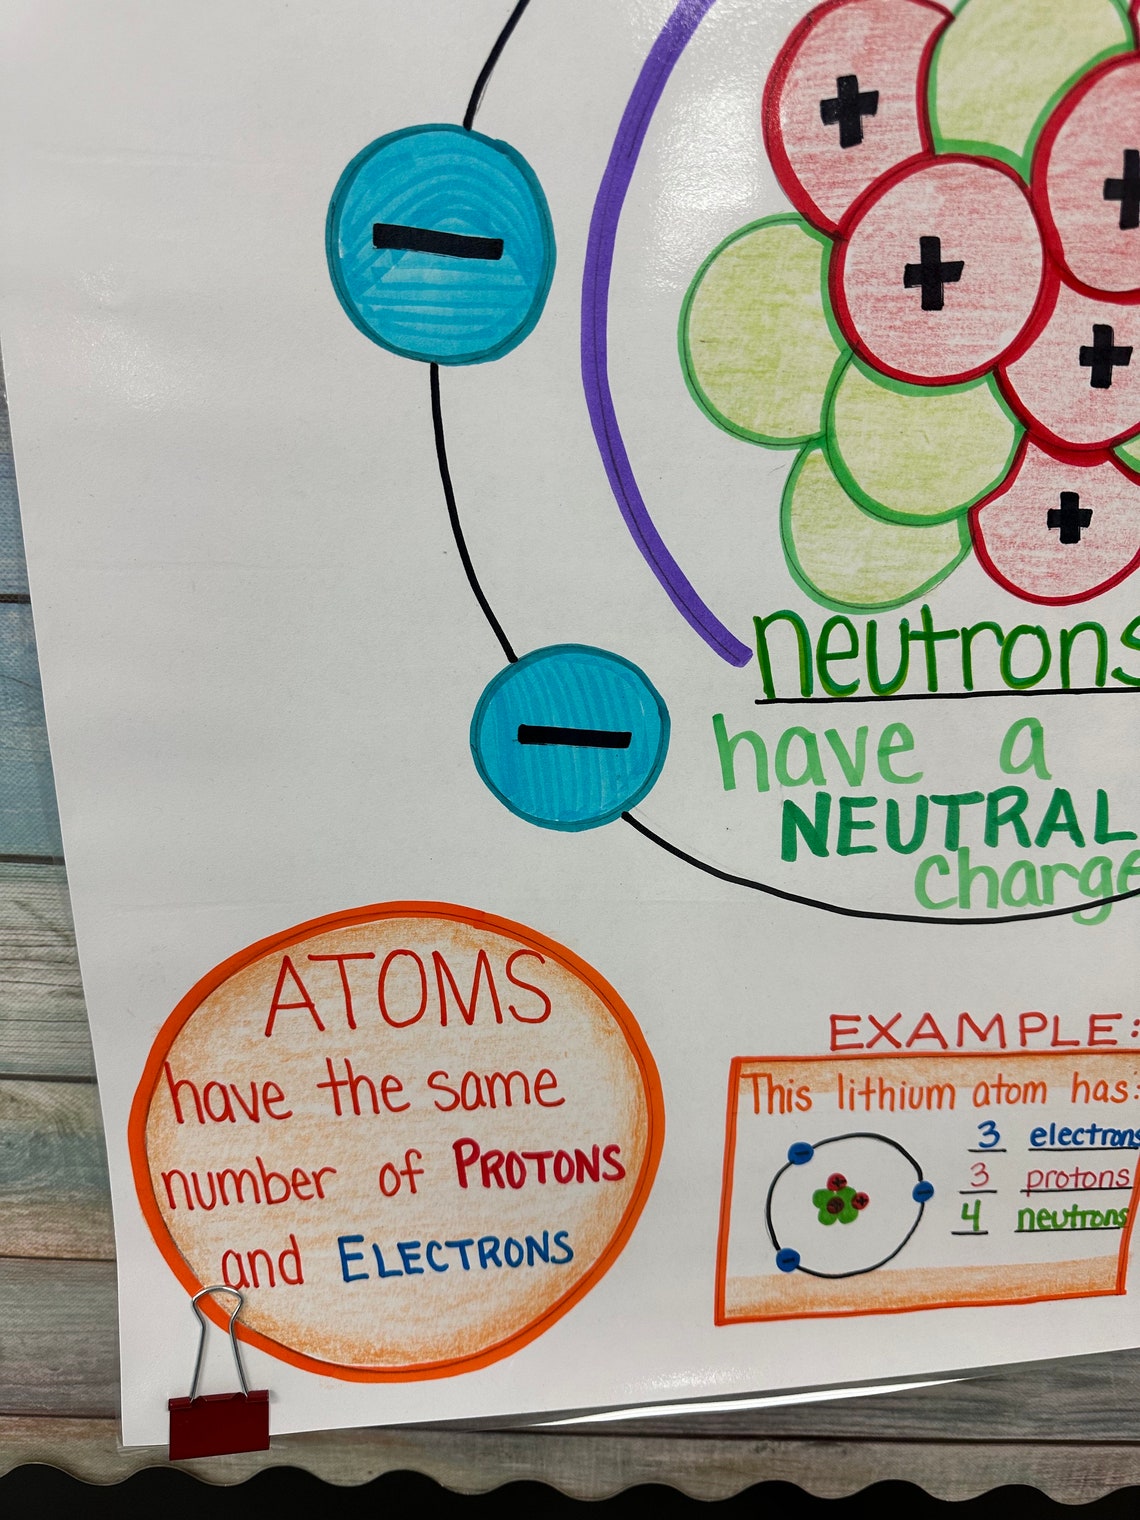 neutrons
have a
NEUTRAL
charge
ATOMS
have the same
number of PROTONS
and ELECTRONS
EXAMPLE:
This lithium atom has:
3 electrons
3 protons
4 neutrons